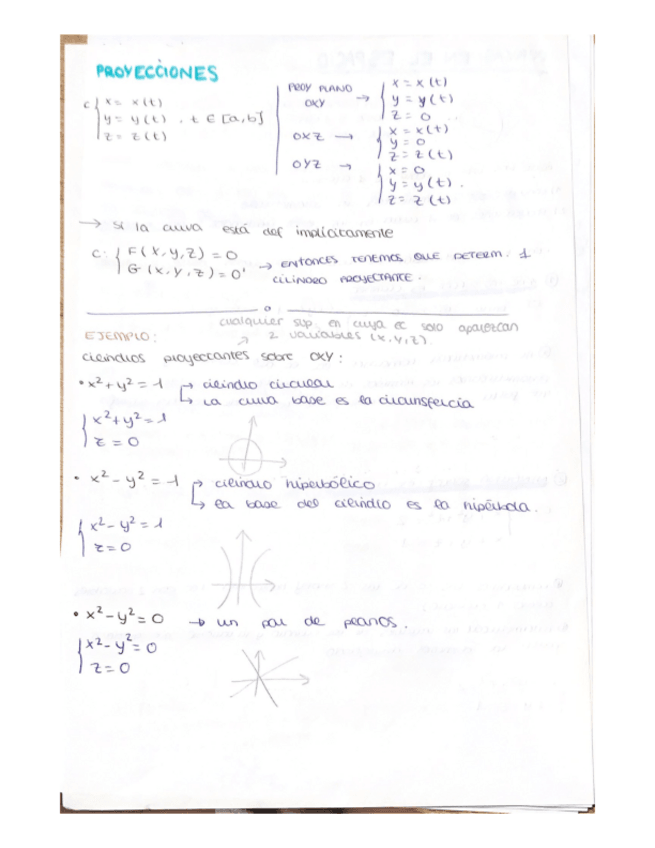 PROYECCIONES
C { x = x(t)
y = y(t) , t ∈ [a,b]
z = z(t)
PROY PLANO OXY → { x = x(t)
y = y(t)
z = 0
OXZ → { x = x(t)
y = 0
z = z(t)
OYZ → { x = 0
y = y(t).
z = z(t)
→ Si la curva está def implícitamente
C: { F(x,y,z) = 0
G(x,y,z) = 0' → ENTONCES TENEMOS QUE DETERM. 1
CILINDRO PROYECTANTE.
cualquier sup. en cuya ec solo aparezcan
2 variables (x,y,z).
EJEMPLO:
cilindros proyectantes sobre OXY:
• x² + y² = 1 → cilindro circular
→ La curva base es la circunsfercia
{ x² + y² = 1
z = 0
• x² - y² = 1 → cilindro hiperbólico
→ La base del cilindro es la hipérbola.
{ x² - y² = 1
z = 0
• x² - y² = 0 → un par de planos.
{ x² - y² = 0
z = 0